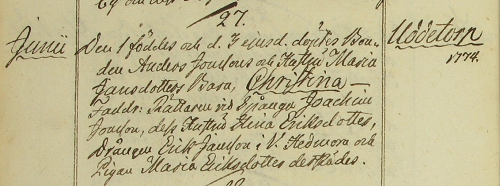 27.
Junii
Den 1 föddes och d. 3 ejusd. döptes Bon-
den Anders Jonsons och Hustru Maria
Jansdotters Barn, Christina
Faddr: Rättaren vid Joachim
Jonson, dess Hustru Stina Ericksdotter,
Drängen Erik Janson i V. Hedmora och
Pigan Maria Eriksdotter
Uddetorp
1774.